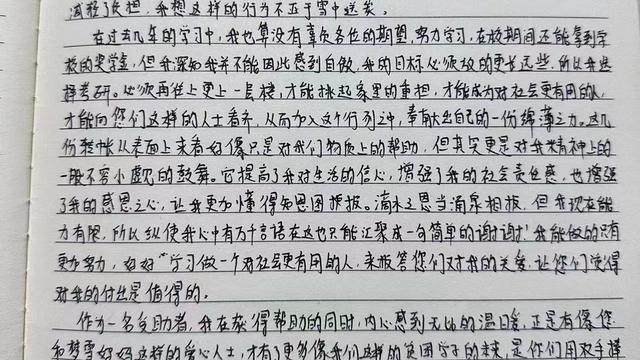 减轻了负担,我想这样的行为不亚于雪中送炭。
在过去几年的学习中,我也算没有辜负各位的期望,努力学习,在校期间还能拿到学
校的奖学金,但我深知我并不能因此感到自傲,我的目标必须放的更长远些,所以我选
择考研。必须再往上更上一层楼,才能挑起家里的重担,才能成为对社会更有用的人,
才能向您们这样的人士看齐,从而加入这个行列之中,奉献出自己的一份绵薄之力。这几
份 从表面上来看好像只是对我们物质上的帮助,但其实更是对我精神上的
一股不容小觑的鼓舞。它提高了我对生活的信心,增强了我的社会责任感,也增强
了我的感恩之心,让我更加懂得知恩图报。滴水之恩当涌泉相报,但我现在能
力有限,所以纵使我心中有万千言语在这也只能汇聚成一句简单的谢谢!我能做的只有
更加努力,好好学习做一个对社会更有用的人,来报答您们对我的关爱,让您们觉得
对我的付出是值得的。
作为一名受助者,我在获得帮助的同时,内心感到无比的温暖,正是有像您
和梦雪 这样的爱心人士,才有了更多像我们这样的贫困学子的未来,是你们用双手撑